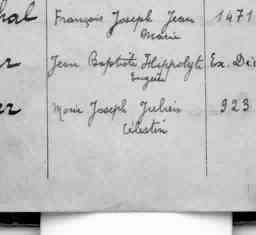 hal François Joseph Jean 1471
Marie
er Jean Baptiste Hippolyte Ex. Die
Eugène
er Marie Joseph Julien 923
Célestin